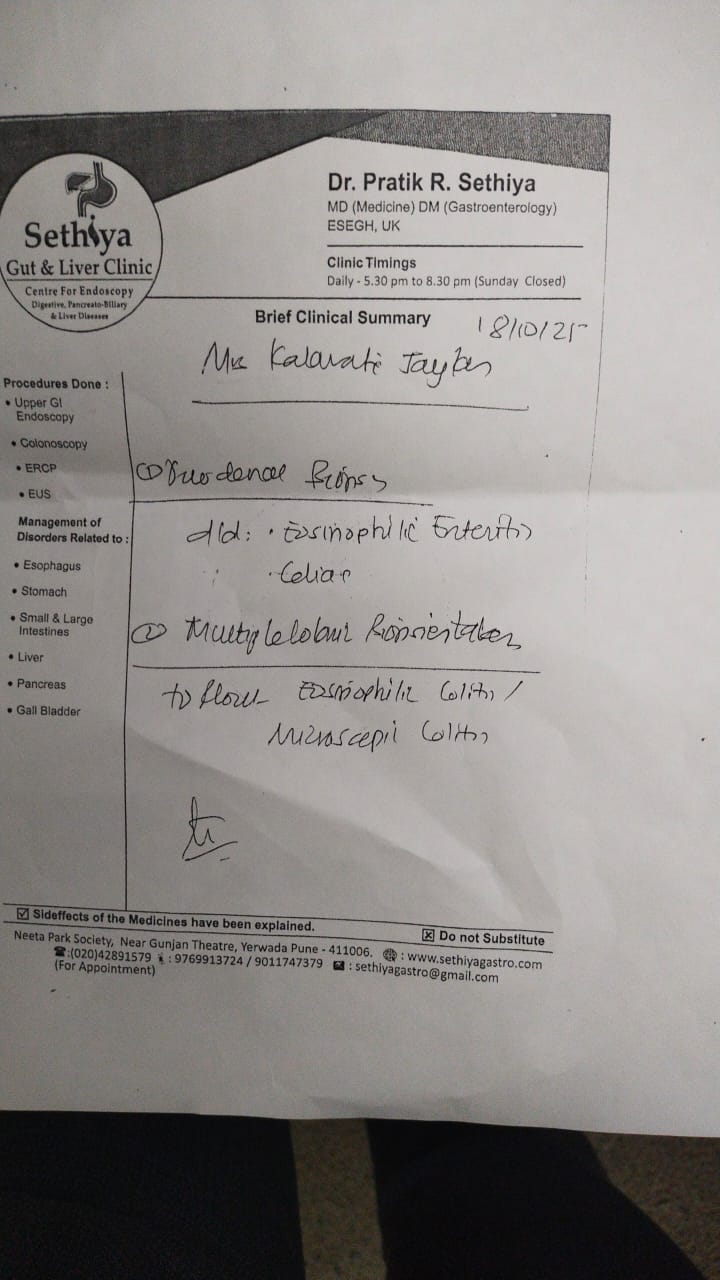 Dr. Pratik R. Sethiya
MD (Medicine) DM (Gastroenterology)
ESEGH, UK
Clinic Timings
Daily - 5.30 pm to 8.30 pm (Sunday Closed)
Sethiya
Gut & Liver Clinic
Centre For Endoscopy
Digestive, Pancreato-Biliary
& Liver Diseases
Brief Clinical Summary
18/10/25
Kalavati
Procedures Done :
• Upper GI
Endoscopy
• Colonoscopy
• ERCP
• EUS
Management of
Disorders Related to :
• Esophagus
• Stomach
• Small & Large
Intestines
• Liver
• Pancreas
• Gall Bladder
① Duodenal Biopsy
d/d: • Eosinophilic Enteritis
• Celiac
② Multiple Biopsies taken
to Eosinophilic Colitis /
Microscopic Colitis
☑ Sideeffects of the Medicines have been explained.
☒ Do not Substitute
Neeta Park Society, Near Gunjan Theatre, Yerwada Pune - 411006. : www.sethiyagastro.com
:(020)42891579 : 9769913724 / 9011747379 : sethiyagastro@gmail.com
(For Appointment)